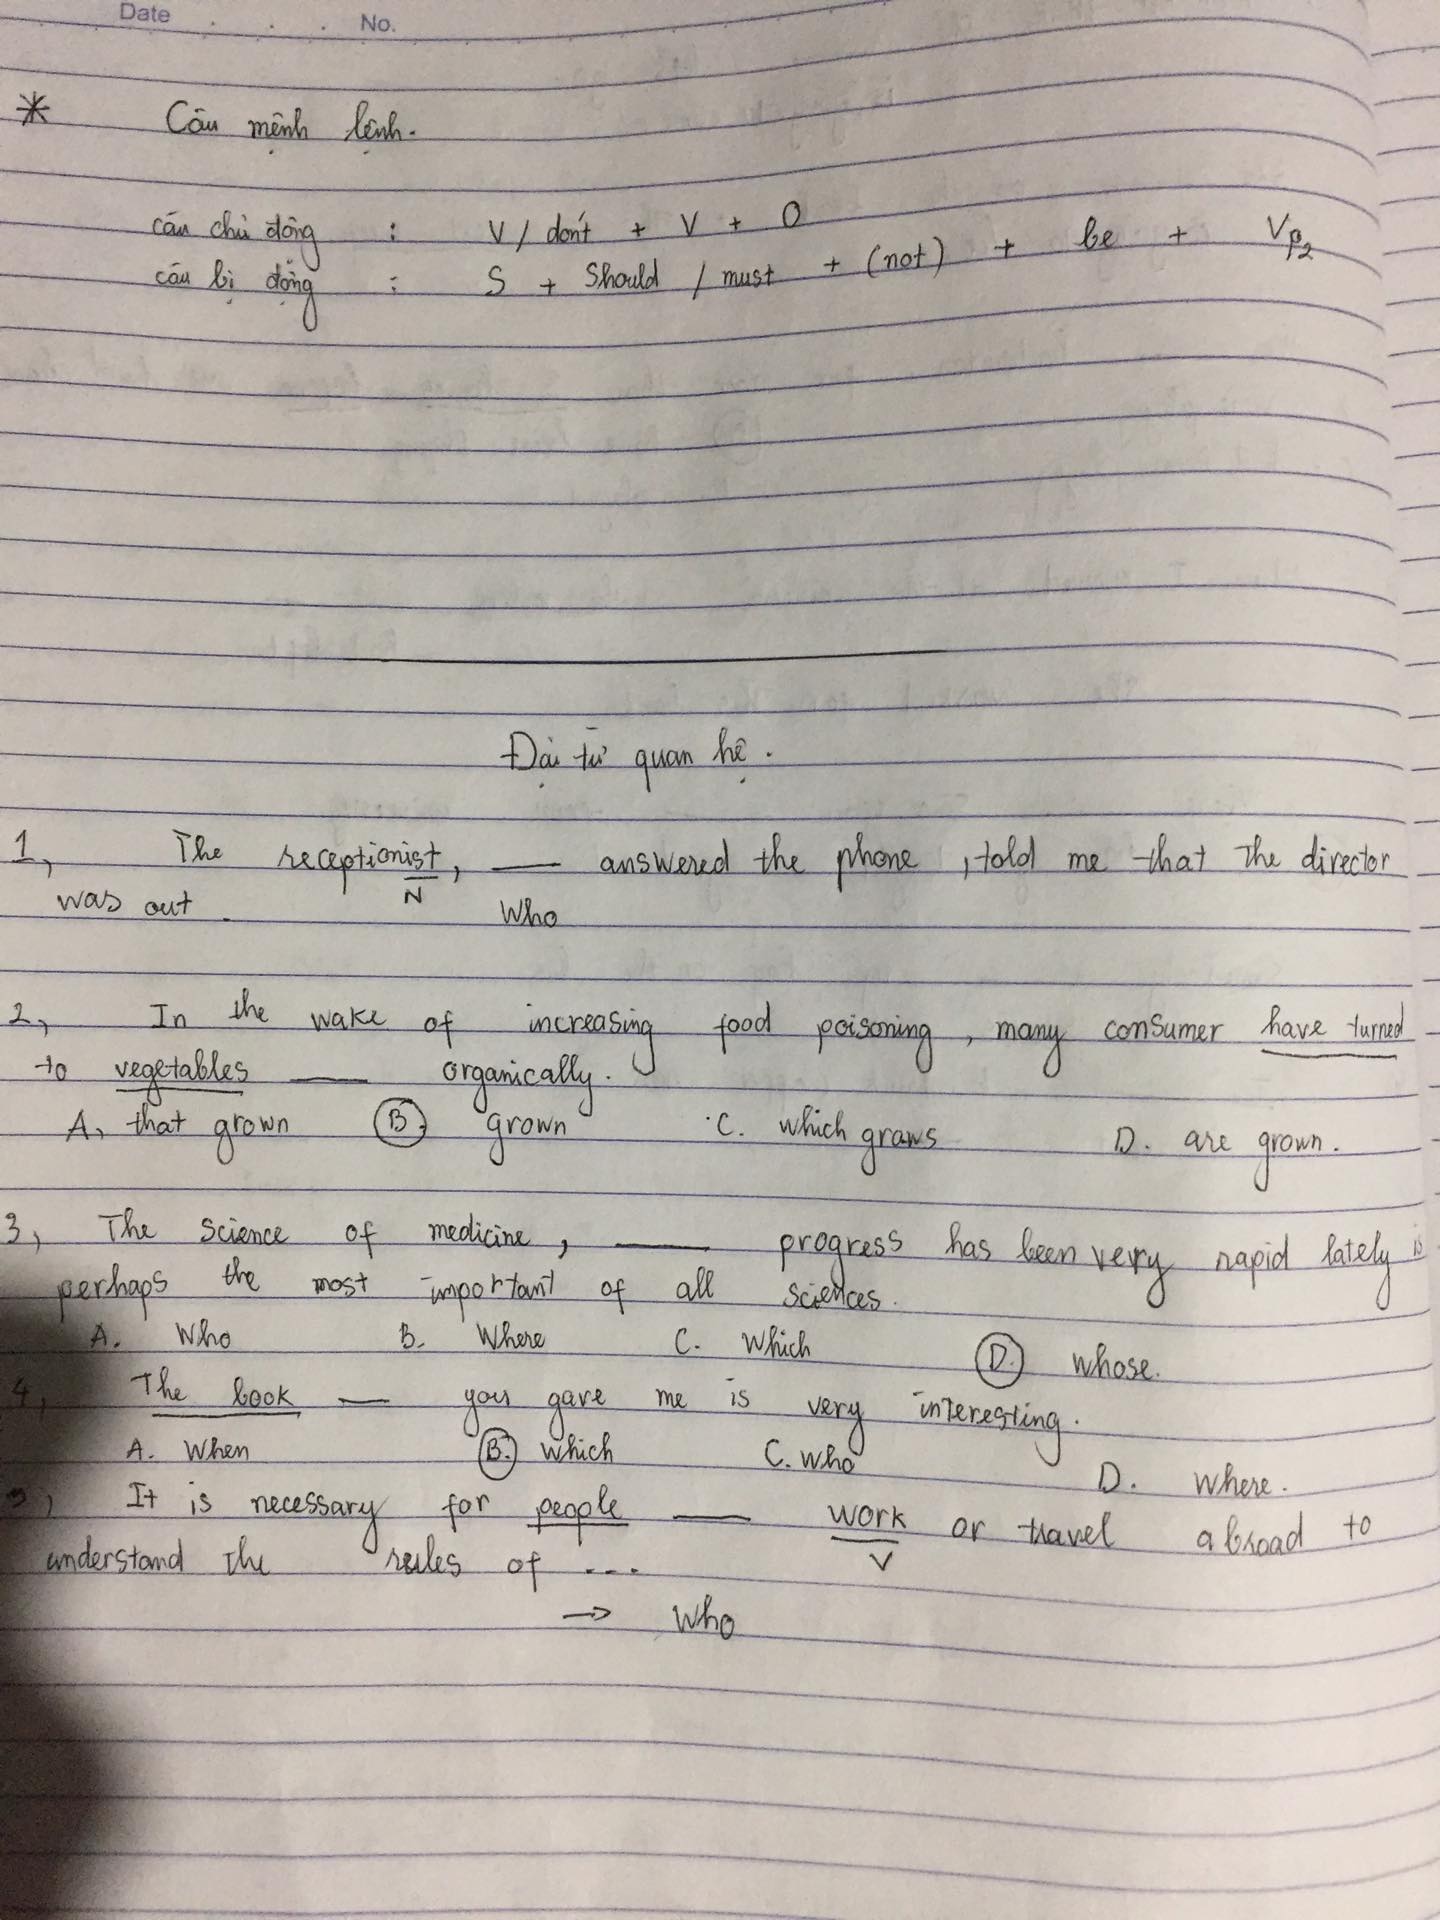 Date . . . No.
* Câu mệnh lệnh.
câu chủ động : V / don't + V + O
câu bị động : S + Should / must + (not) + be + Vp2
Đại từ quan hệ.
1, The receptionist, ___ answered the phone, told me that the director
N
was out. Who
2, In the wake of increasing food poisoning, many consumer have turned
to vegetables ___ organically.
A, that grown B. grown C. which grows D. are grown.
3, The science of medicine, ___ progress has been very rapid lately is
perhaps the most important of all sciences.
A. Who B. Where C. Which D. whose.
4, The book ___ you gave me is very interesting.
A. When B. which C. who D. where.
5, It is necessary for people ___ work or travel abroad to
V
understand the rules of ...
→ Who